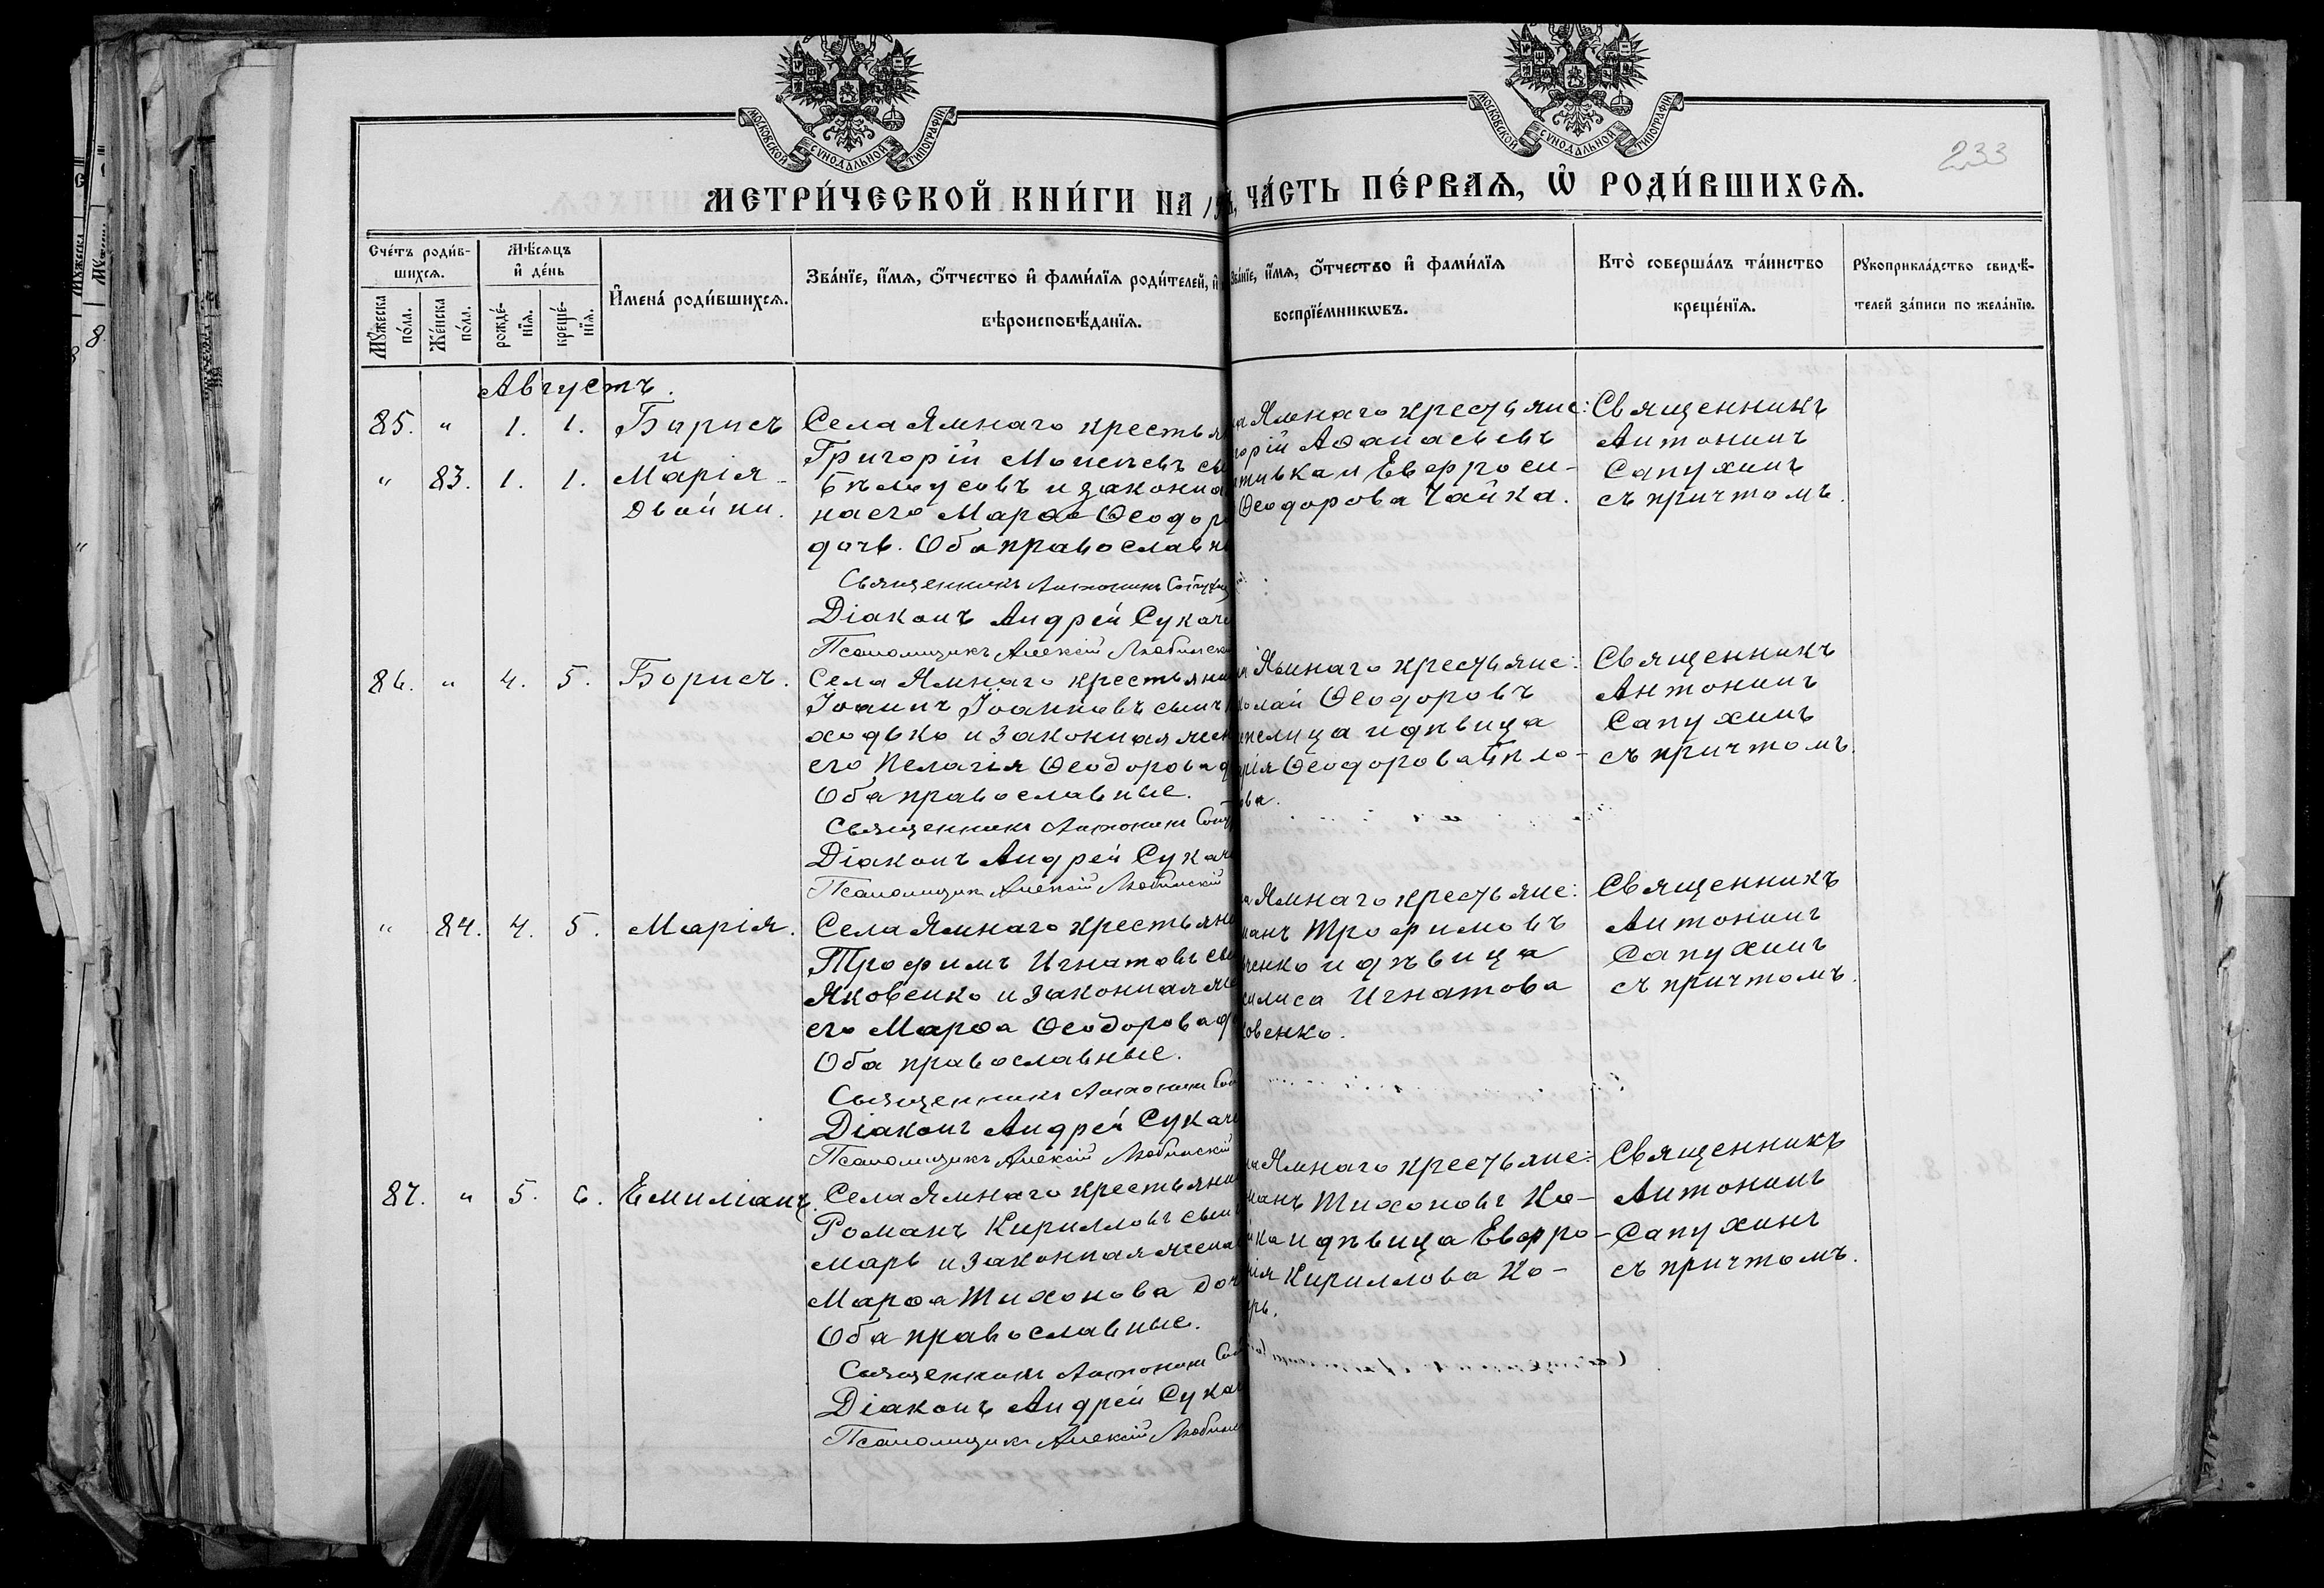 МОСКОВСКОЙ СѴНОДАЛЬНОЙ ТИПОГРАФІИ
МОСКОВСКОЙ СѴНОДАЛЬНОЙ ТИПОГРАФІИ
233
МЕТРИ́ЧЕСКОЙ КНИ́ГИ НА
ЧА́СТЬ ПЕ́РВАѦ, Ѽ РОДИ́ВШИХСѦ.
Сче́тъ роди́в-
шихсѧ.
Мꙋ́жеска
по́ла.
Же́нска
по́ла.
Мѣ́сѧцъ
и҆ де́нь
рожде́-
нїѧ.
креще́-
нїѧ.
И҆мена̀ роди́вшихсѧ.
Зва́нїе, и҆́мѧ, ѻ҆́тчество и҆ фами́лїѧ роди́телей, и҆
вѣроисповѣ́данїѧ.
Зва́нїе, и҆́мѧ, ѻ҆́тчество и҆ фами́лїѧ
воспрїе́мникѡвъ.
Кто̀ соверша́лъ та́инство
креще́нїѧ.
Рꙋкоприкла́дство свидѣ́-
телей за́писи по жела́нїю.
Августъ.
85. " 1. 1. Борисъ
и
" 83. 1. 1. Марія
Двойни.
Села Ямнаго крестья
Григорій Моисеевъ сы
Бѣлоусовъ и законна
на его Марѳа Ѳеодор
дочь. Оба православн
Священникъ Антонинъ Сапухин
Діаконъ Андрей Сукаче
Псаломщикъ Алексій Любинск
Ямнаго крестьяне:
горій Аѳанасьевъ
и Евфроси-
Ѳеодорова Чайка.
Священникъ
Антонинъ
Сапухинъ
съ причтомъ.
86. " 4. 5. Борисъ.
Села Ямнаго крестьяни
Іоаннъ Іоанновъ сынъ
ходько и законная жен
его Пелагія Ѳеодорова д
Оба православные.
Священникъ Антонинъ Сапу
Діаконъ Андрей Сукаче
Псаломщикъ Алексій Любинскій
Ямнаго крестьяне:
колай Ѳеодоровъ
и дѣвица
рія Ѳеодорова Тѣло-
ова.
Священникъ
Антонинъ
Сапухинъ
съ причтомъ.
" 84. 4. 5. Марія.
Села Ямнаго крестьяни
Трофимъ Игнатовъ сы
Яковенко и законная же
его Марѳа Ѳеодорова д
Оба православные.
Священникъ Антонинъ Сап
Діаконъ Андрей Сукаче
Псаломщикъ Алексій Любинскій
Ямнаго крестьяне:
манъ Трофимовъ
ченко и дѣвица
силиса Игнатова
ковенко.
Священникъ
Антонинъ
Сапухинъ
съ причтомъ.
87. " 5. 6. Емиліанъ.
Села Ямнаго крестьянин
Романъ Кирилловъ сынъ
марь и законная жена
Марѳа Тихонова доч
Оба православные.
Священникъ Антонинъ Сап
Діаконъ Андрей Сукач
Псаломщикъ Алексій Любинс
Ямнаго крестьяне:
манъ Тихоновъ Ко-
и дѣвица Евфро-
нія Кириллова Ко-
арь.
Священникъ
Антонинъ
Сапухинъ
съ причтомъ.